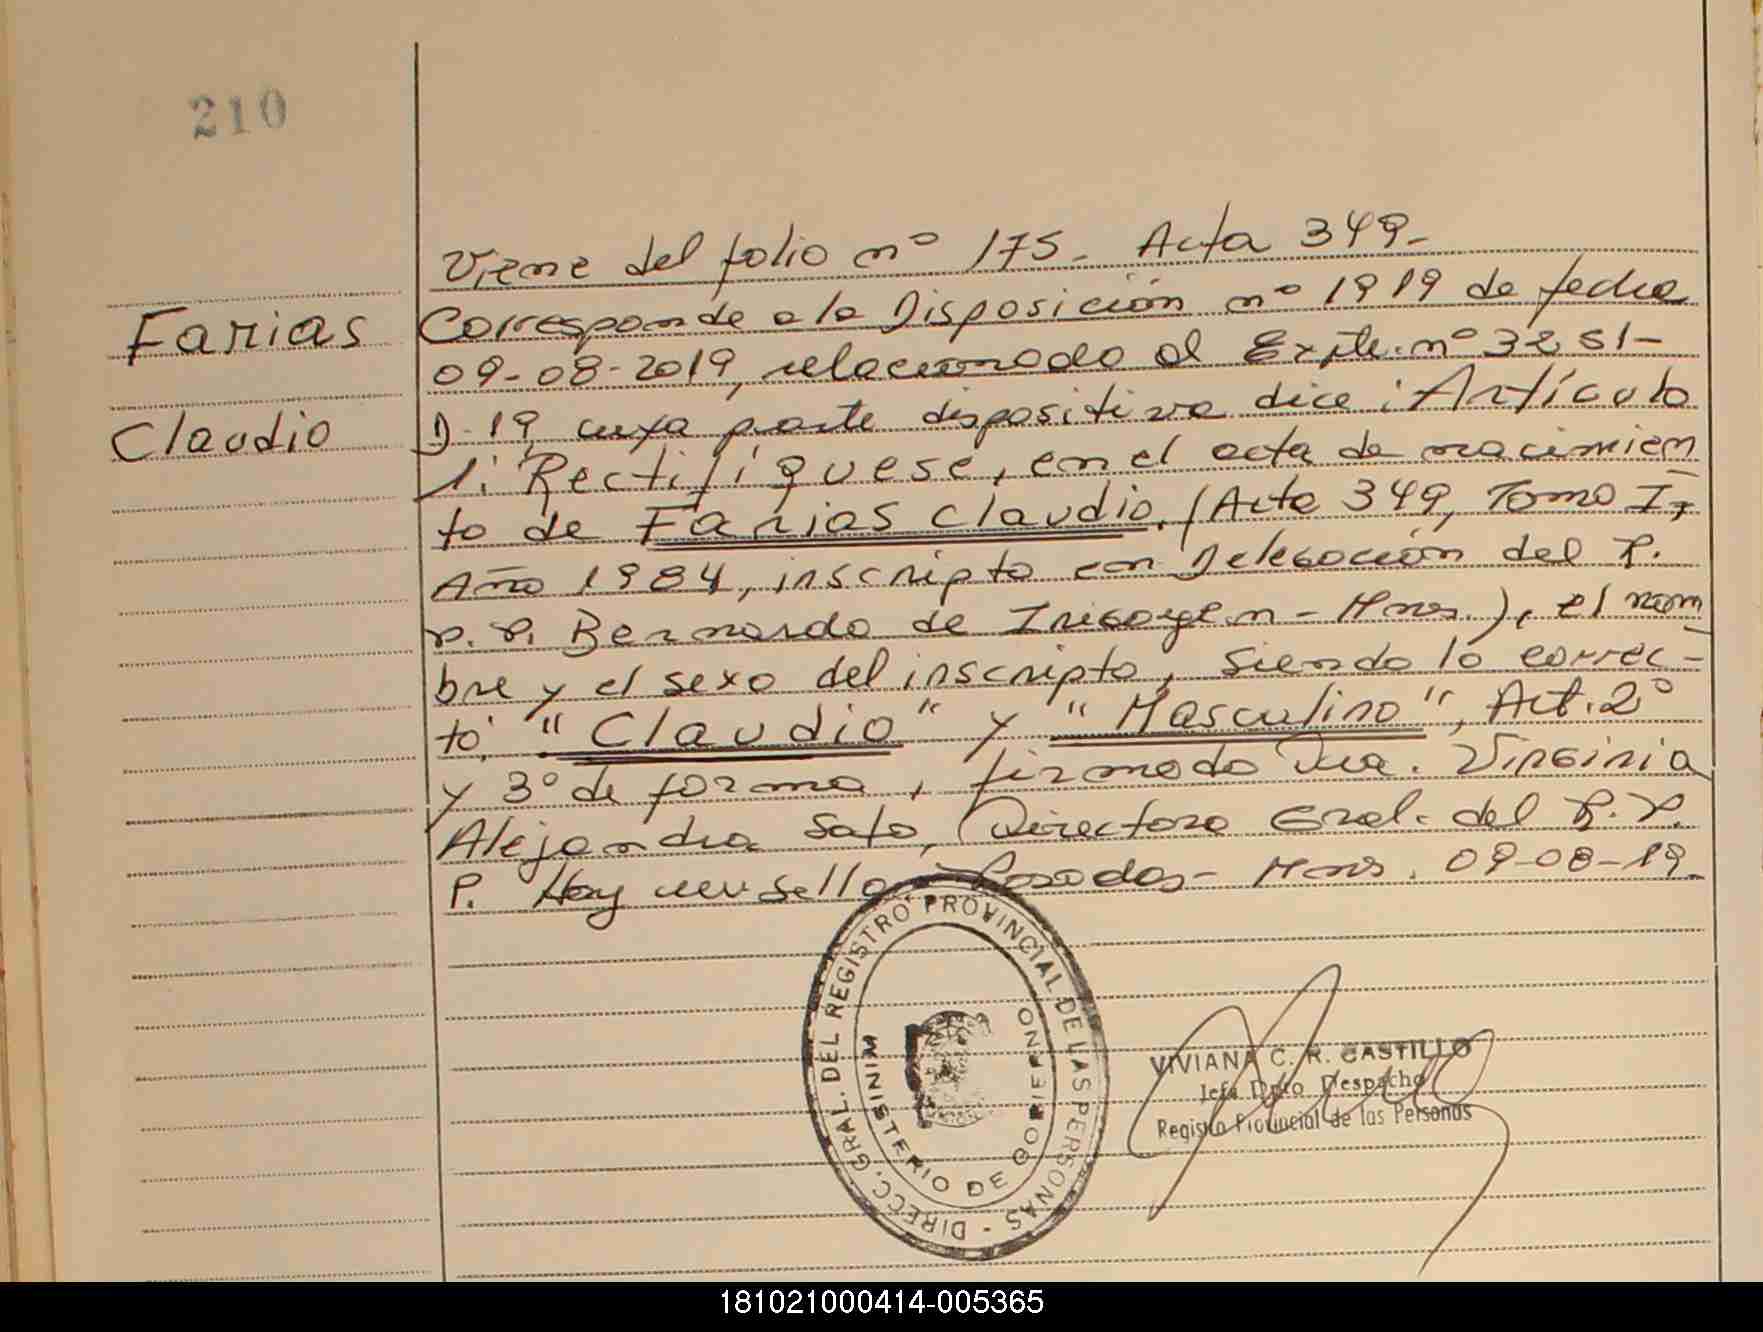 210
Viene del folio nº 175. Acta 349-
Farias
Claudio
Corresponde a la Disposición nº 1919 de fecha
09-08-2019, relacionado al Expte. nº 3251-
D-19, cuya parte dispositiva dice: Artículo
1: Rectifíquese, en el acta de nacimien
to de Farias Claudio, (Acta 349, Tomo I,
Año 1984, inscripto en Delegación del R.
P. P. Bernardo de Irigoyen - Mnes.), el nom
bre y el sexo del inscripto, siendo lo correc-
to, "Claudio" y "Masculino", Art. 2º
y 3º de forma, firmado Dra. Virginia
Alejandra Sato, Directora Gral. del R.P.
P. Hay un sello. Posadas - Mnes. 09-08-19.
DIRECC. GRAL. DEL REGISTRO PROVINCIAL DE LAS PERSONAS -
MINISTERIO DE GOBIERNO
VIVIANA C. R. CASTILLO
Jefa Dpto Despacho
Registro Provincial de las Personas
181021000414-005365